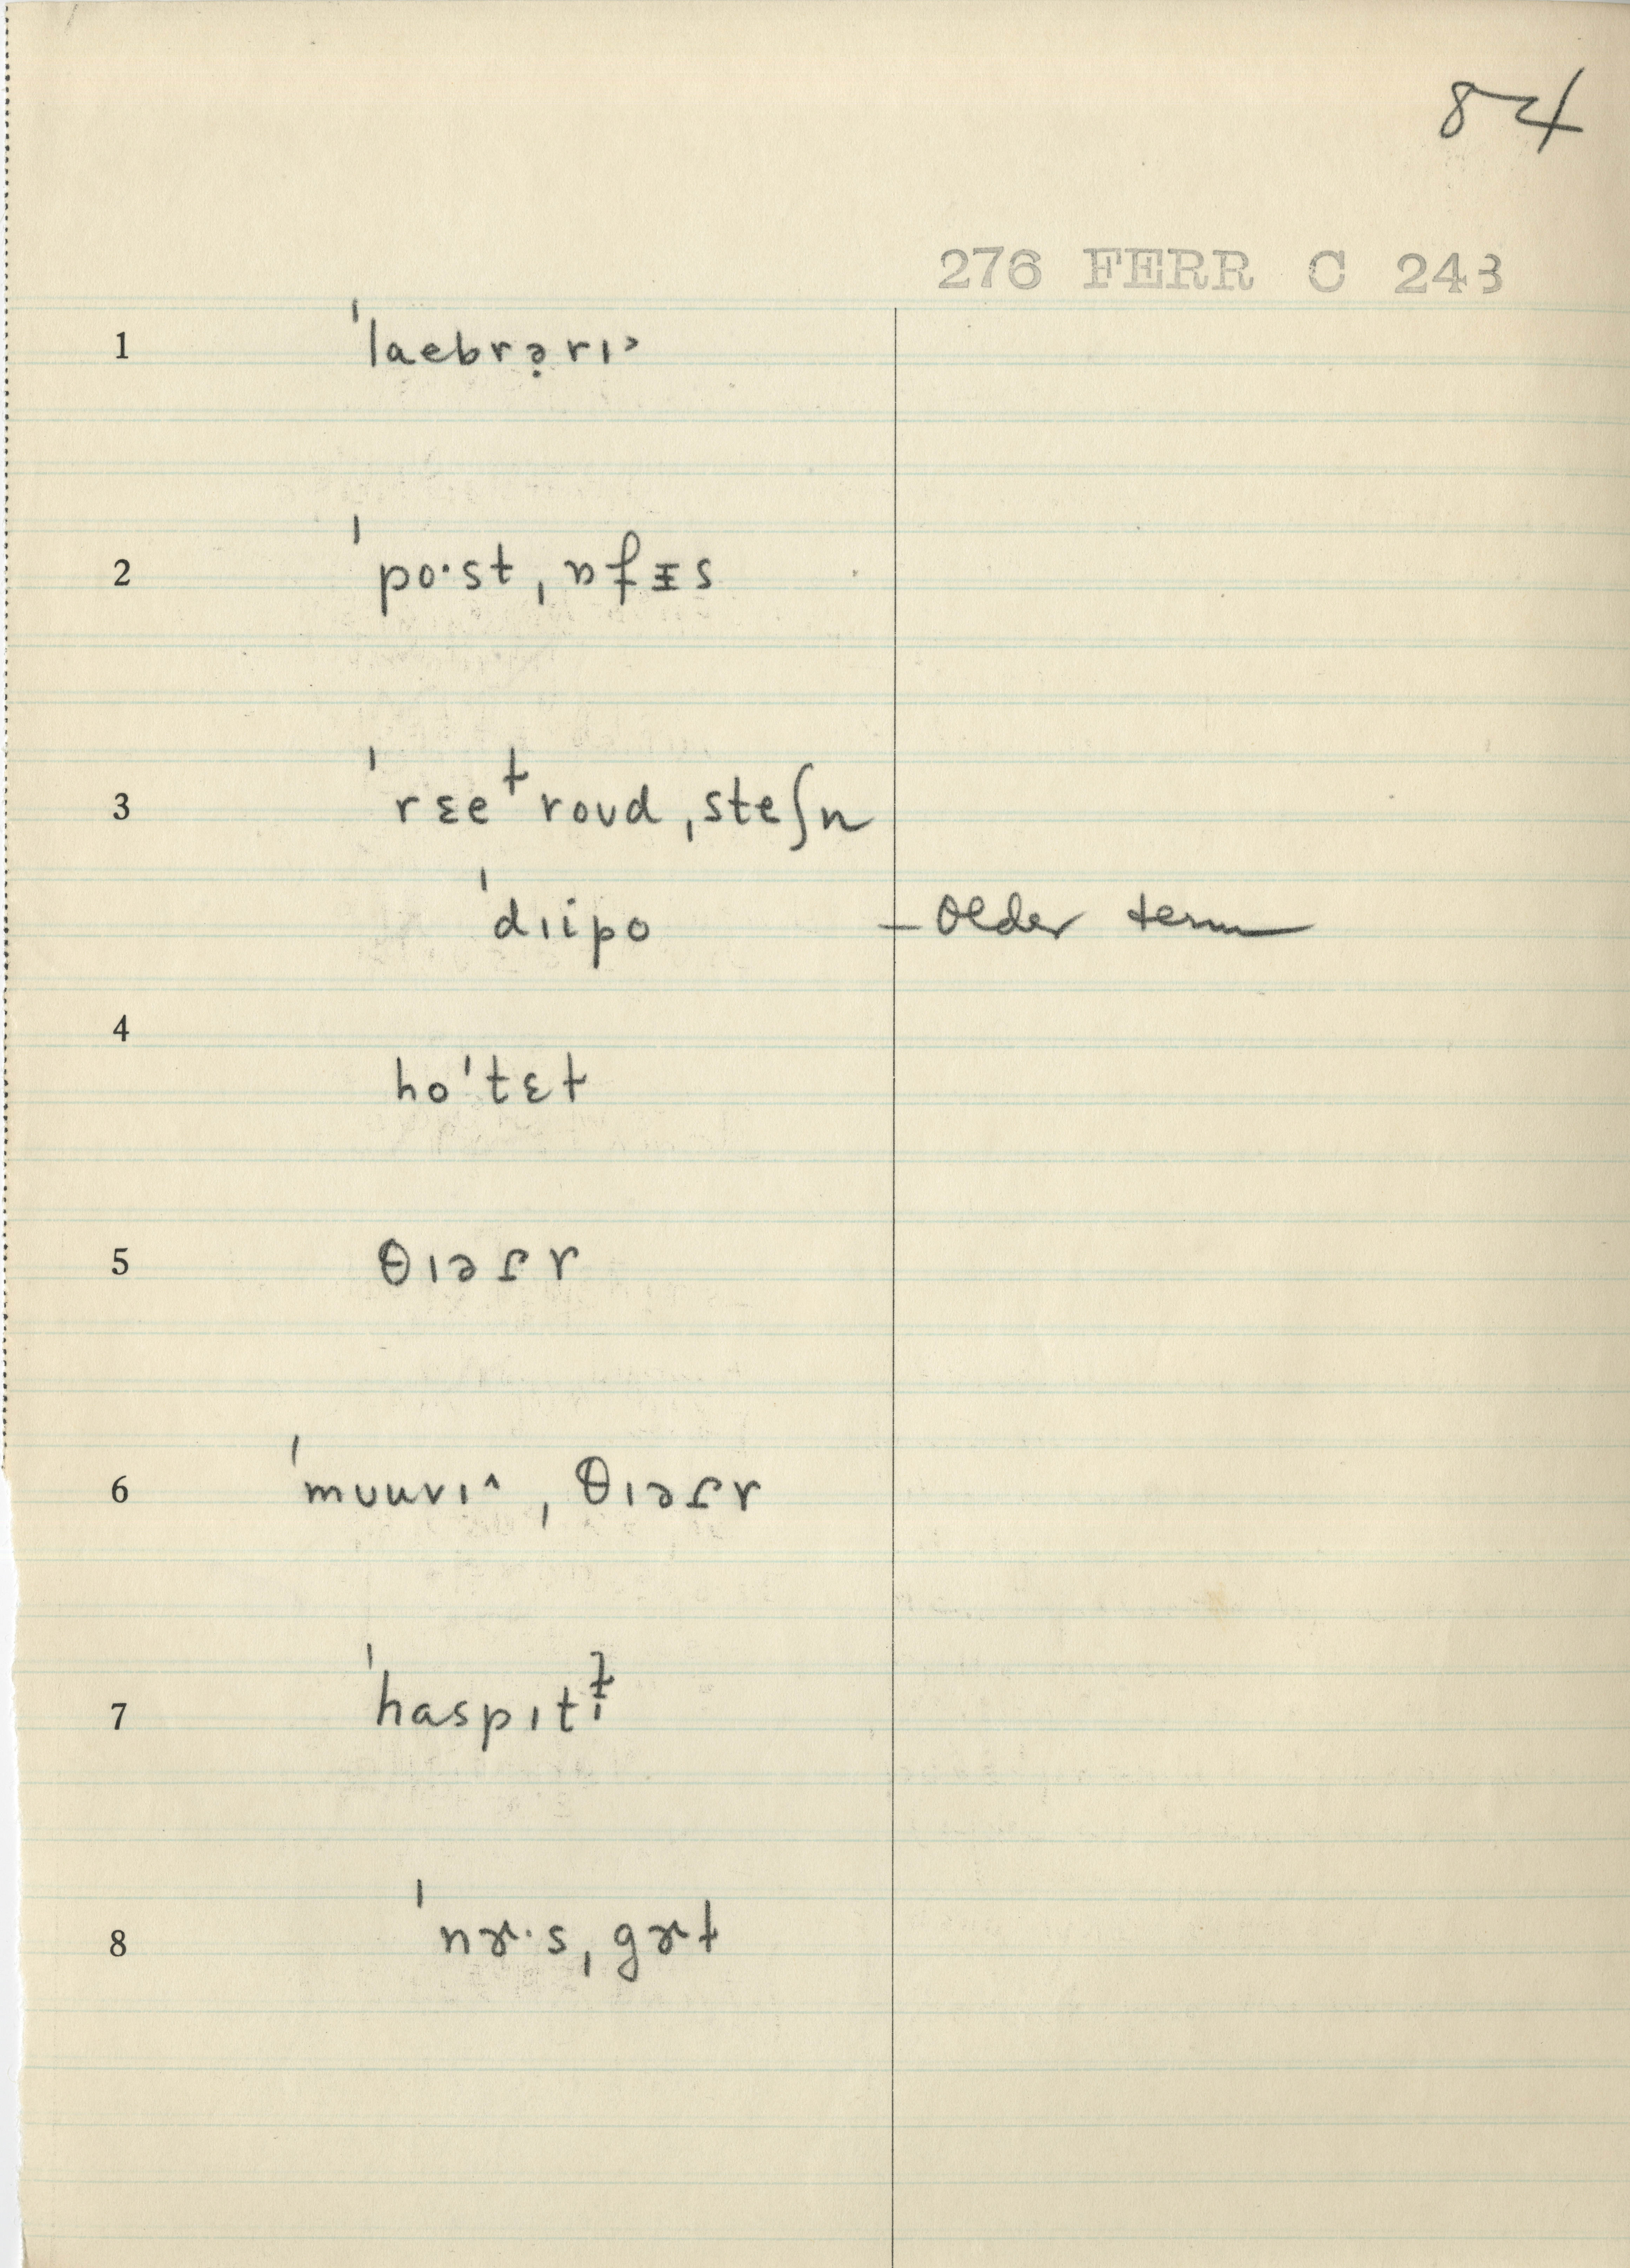 84
276 FERR C 243
1 ˈlaebrə̣rɪ˃
2 ˈpo·st ˌɒfᵻs
3 ˈrɛeɫroʊd ˌsteʃn
ˈdɪipo – older term
4 hoˈtɛɫ
5 θɪəɾɚ
6 ˈmʊuvɪ^ ˌθɪəɾɚ
7 ˈhaspɪtɫ̵
8 ˈnɚ·s ˌgɚɫ